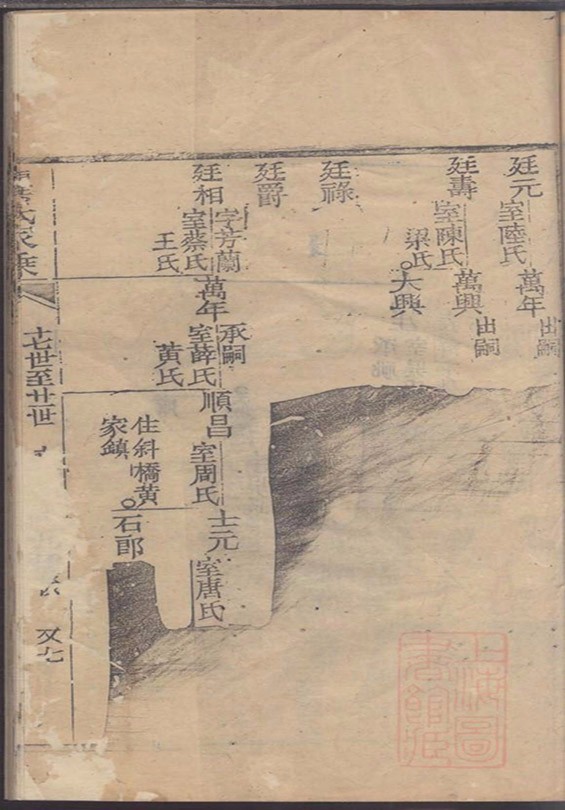 廷元
室陸氏
萬年
出嗣
廷壽
室陳氏
梁氏
萬興
出嗣
大興
廷祿
廷爵
廷相
字芳蘭
室蔡氏
王氏
萬年
承嗣
室薛氏
黃氏
順昌
室周氏
住斜橋黃
家鎮
士元
室唐氏
石郎
氏家乘
十七世至廿世
又七
上海圖書館藏